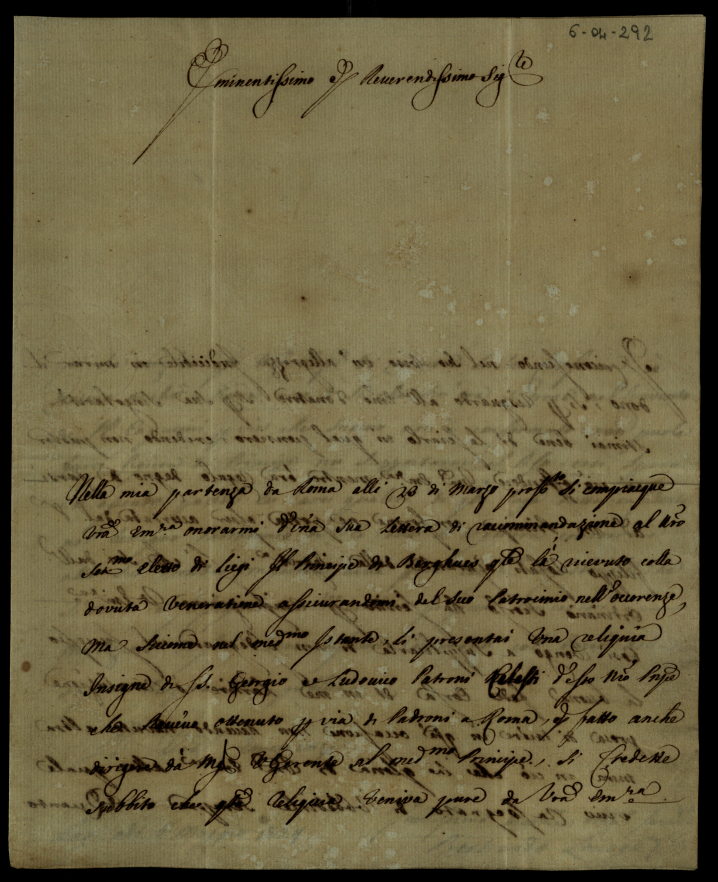 6-04-292
Eminentissimo e Reverendissimo Sig.re
Nella mia partenza da Roma alli 20 di Marzo pross.to si compiacque
Vra Em.za onorarmi d'una sua lettera di raccimmandazione al Nro
Ser.mo eletto di Liegi Il Principe di Berghues qle là ricevuto colla
dovuta venerazione assicurandomi del suo Patrocinio nell'ocorenze,
Ma siccome nel med.mo Istante li presentai Una reliquia
Insigne di S.S. Georgio e Ludovico Patroni d'esso Nro Pnpe
che aveva ottenuto p via di Padroni a Roma, e fatto anche
dirigere da Mg.r V.Gerente al med.mo Principe, Si Credette
subbito che qle reliquia veniva pure da Vra Em.za